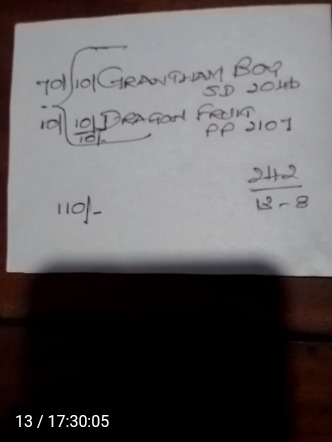 70/ 10/ GRANTHAM BOY
SD 2046
10/ 10/ DRAGON FRUIT
10/-
PP 2107
242
13-8
110/-
13 / 17:30:05